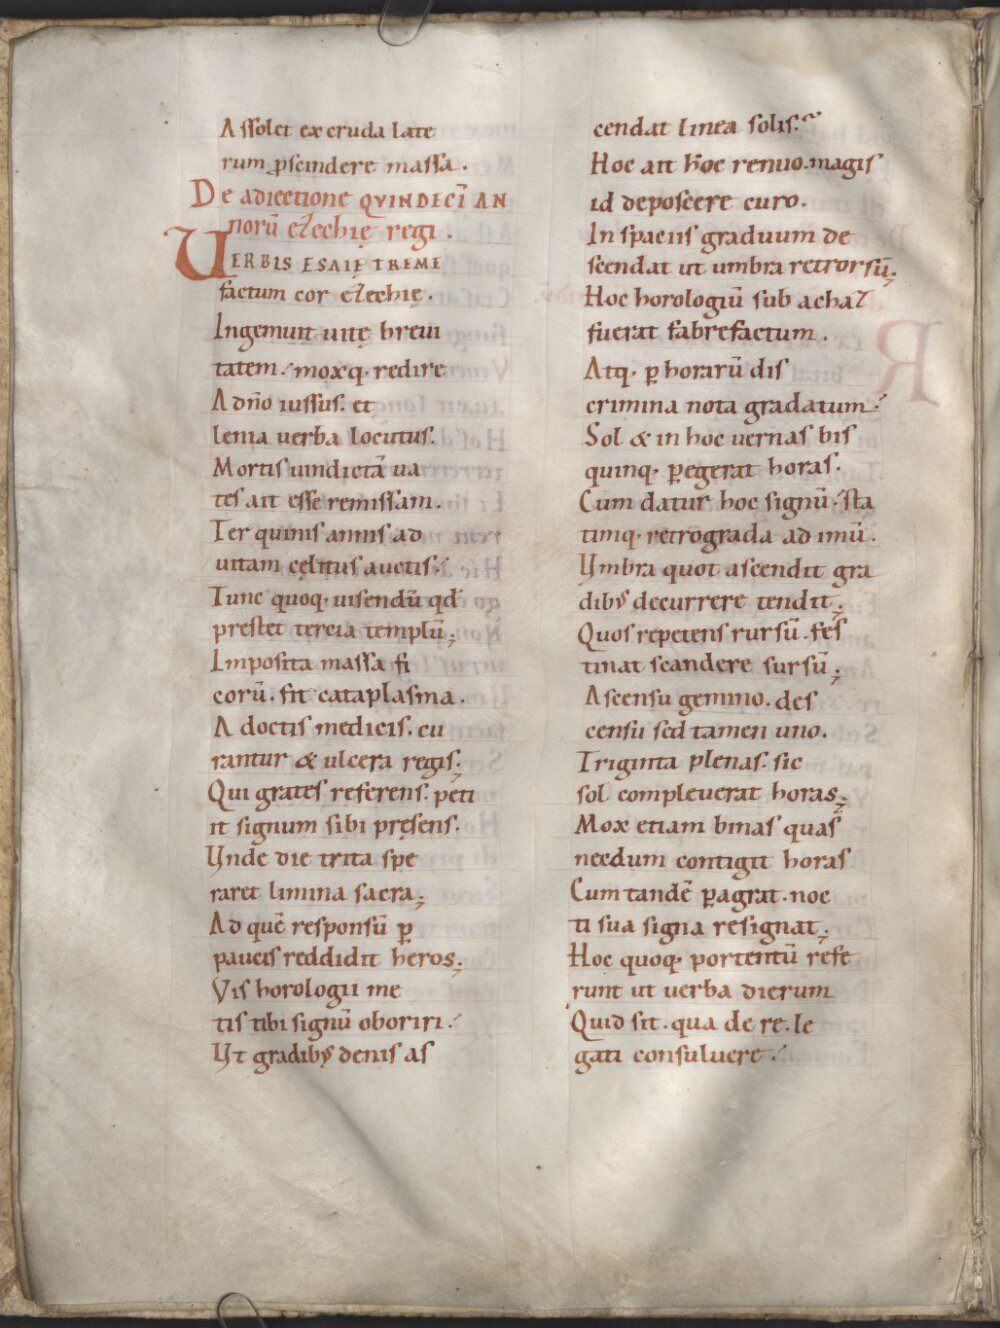 Assolet ex cruda late
rum p̱scindere massa.
De adiectione QVINDECĪ AN
norū eƶechię regi.
VERBIS ESAIĘ TREME
factum cor eƶechię.
Ingemuit uitę breui
tatem. moxq· redire
A dn̄o iussus. et
lenia uerba locutus.
Mortis uindictā ua
tes ait esse remissam.
Ter quinis annis ad
uitam cęlitus auctis.
Tunc quoq· uisendū qd
prestet tercia templū;
Imposita massa fi
corū. fit cataplasma.
A doctis medicis. cu
rantur & ulcera regis;
Qui grates referens. peti
it signum sibi pręsens.
Vnde die trita spe
raret limina sacra;
Ad quē responsū ꝑ
paucis reddidit heros;
Vis horologii me
tis tibi signū oboriri.
Vt gradibꝰ denis as
cendat linea solis.
Hoc ait h̄oc renuo. magis
id deposcere curo.
In spaciis graduum de
scendat ut umbra retrorsū;
Hoc horologiū sub achaƶ
fuerat fabrefactum.
Atq· ꝑ horarū dis
crimina nota gradatum.
Sol & in hoc uernas bis
quinq· ꝑegerat horas.
Cum datur hoc signū. sta
timq· retrograda ad imū.
Vmbra quot ascendit gra
dibꝰ decurrere tendit;
Quos repetens rursū. fes
tinat scandere sursū;
Ascensu gemino. des
censu sed tamen uno.
Triginta plenas. sic
sol compleuerat horas;
Mox etiam binas quas
necdum contigit horas
Cum tandē ꝑagrat. noc
ti sua signa resignat;
Hoc quoq· portentū refe
runt ut uerba dierum
Quid sit. qua de re. le
gati consuluere.